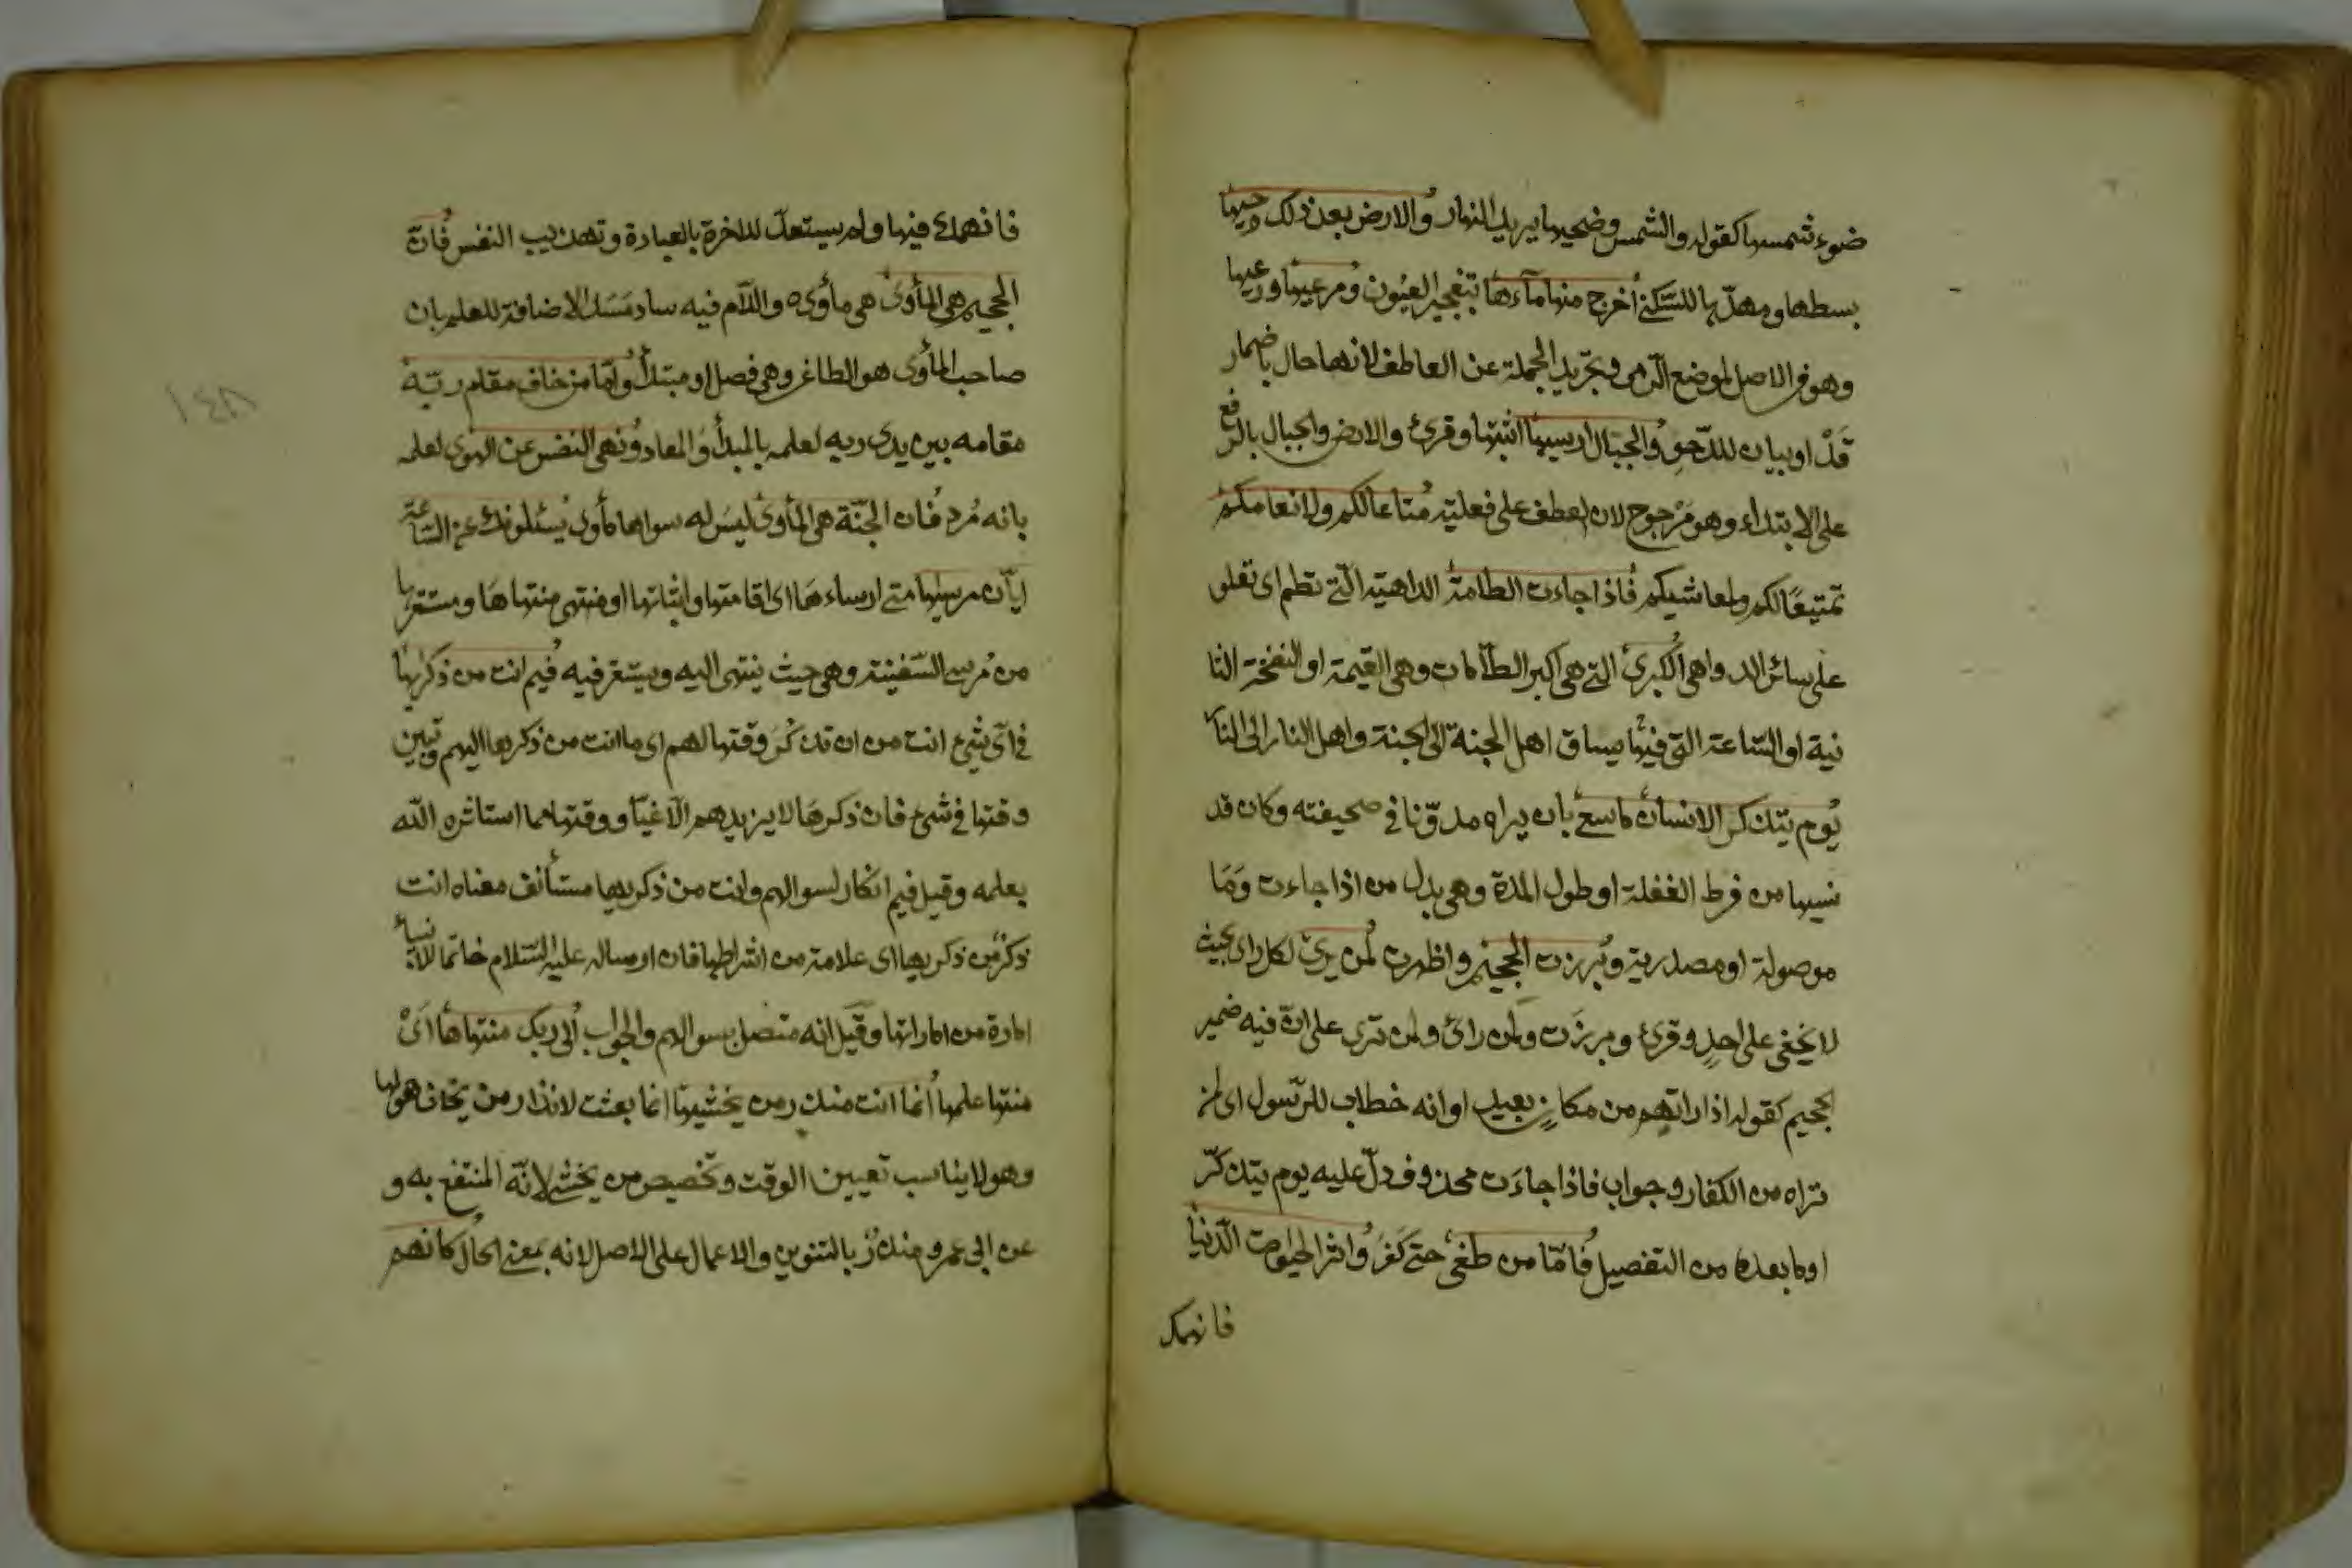 ضوء شمسها كقوله والشمس وضحيها يريد النهار والارض بعد ذلك دحيها
بسطها ومهدها للسكنى اخرج منها ماءها بتفجير العيون ومرعيها ورعيها
وهو في الاصل لموضع الرعى وتجريد الجملة عن العاطف لانها حال باضمار
قد او بيان للدحو والجبال ارسيها اثبتها وقرئ والارض والجبال بالرفع
على الابتداء وهو مرجوح لان العطف على فعلية متاعا لكم ولانعامكم
تمتيعا لكم ولمواشيكم فاذا جاءت الطامة الداهية التى تطم اى تعلو
على سائر الدواهى الكبرى التى هى اكبر الطامات وهى القيمة او النفخة الثا
نية او الساعة التى فيها يساق اهل الجنة الى الجنة واهل النار الى النار
يوم يتذكر الانسان ما سعى بان يراه مدونا في صحيفته وكان قد
نسيها من فرط الغفلة او طول المدة وهى بدل من اذا جاءت وما
موصولة او مصدرية وبرزت الجحيم واظهرت لمن يرى لكل راى بحيث
لا يخفى على احد وقرئ وبرزت ولمن راى ولمن ترى على ان فيه ضمير
الجحيم كقوله اذا راتهم من مكان بعيد او انه خطاب للرسول اى لمن
تراه من الكفار وجواب فاذا جاءت محذوف دل عليه يوم يتذكر
او ما بعده من التفصيل فاما من طغى حتى كفر واثر الحيوة الدنيا
فانهمك
فانهمك فيها ولم يستعد للاخرة بالعبادة وتهذيب النفس فان
الجحيم هى المأوى هى مأويه واللام فيه ساد مسد الاضافة للعلم بان
صاحب المأوى هو الطاغى وهى فصل او مبتدأ واما من خاف مقام ربه
مقامه بين يدى ربه لعلمه بالمبدأ والمعاد ونهى النفس عن الهوى لعلمه
بانه مرد فان الجنة هى المأوى ليس له سواها مأوى يسئلونك عن الساعة
ايان مرسيها متى ارساءها اى اقامتها واثباتها او منتهى منتهاها ومستقرها
من مرسى السفينة وهى حيث ينتهى اليه ويستقر فيه فيم انت من ذكريها
في اى شئ انت من ان تذكر وقتها لهم اى ما انت من ذكريها اليهم وتبين
وقتها في شئ فان ذكرها لا يزيدهم الا غيا ووقتها مما استاثره الله
بعلمه وقيل فيم انكار لسوالهم وانت من ذكريها مستأنف معناه انت
ذكر من ذكريها اى علامة من اشراطها فان ارساله عليه السلام خاتما للانبياء
امارة من اماراتها وقيل انه متصل بسوالهم والجواب الى ربك منتهاها اى
منتها علمها انما انت منذر من يخشيها انما بعثت لانذار من يخاف هولها
وهو لا يناسب تعيين الوقت وتخصيص من يخشى لانه المنتفع به و
عن ابى عمرو منذر بالتنوين والاعمال على الاصل لانه بمعنى الحال كانهم
١٤٨